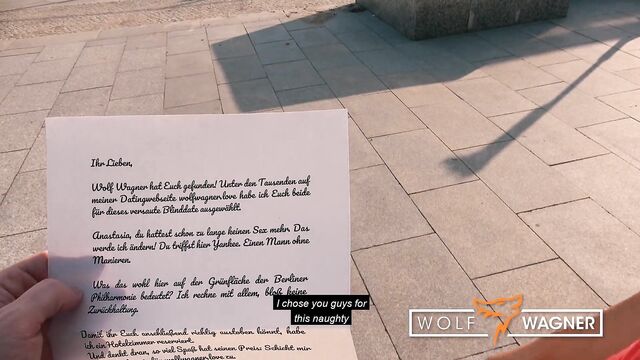 Ihr Lieben,
Wolf Wagner hat Euch gefunden! Unter den Tausenden auf
meiner Datingwebseite wolfwagner.love habe ich Euch beide
für dieses versaute Blinddate ausgewählt.
Anastasia, du hattest schon zu lange keinen Sex mehr. Das
werde ich ändern! Du triffst hier Yankee. Einen Mann ohne
Manieren.
Was das wohl hier auf der Grünfläche der Berliner
Philharmonie bedeutet? Ich rechne mit allem, bloß keine
Zurückhaltung.
Damit ihr Euch anschließend richtig austoben könnt, habe
ich ein Hotelzimmer reserviert.
Und denkt dran, so viel Spaß hat seinen Preis: Schickt mir
wolfwagner.love zu.
I chose you guys for
this naughty
WOLF WAGNER